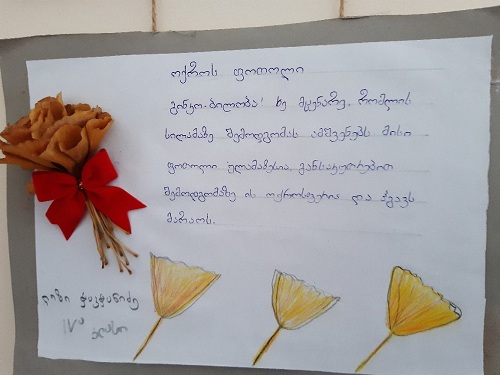 ოქროს ფოთოლი
გინკო-ბილობა! ხე მცენარე, რომლის
სილამაზე შემოდგომას ამშვენებს მისი
ფოთოლი ულამაზესია, განსაკუთრებით
შემოდგომაზე ის ოქროსფერია და ჰგავს
მარაოს.
ლიზი ჭაჭანიძე
IVა კლასი